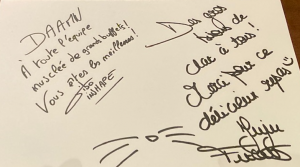 DAAMN
À toute l'équipe
musclée de grand buffet!
Vous êtes les meilleurs!
INSHAPE
Des gros
de
à tous!
Merci pour ce
délicieux repas